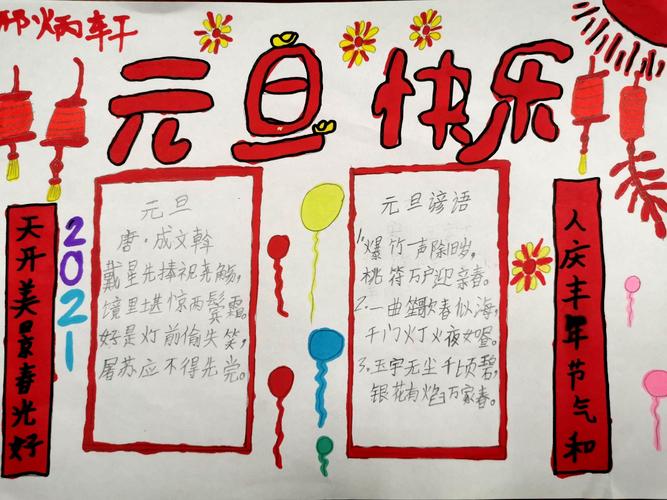 邢炳轩
元旦快乐
天开美景春光好
2021
元旦
唐·成文斡
戴星先捧祝尧觞,
境里堪惊两鬓霜
好是灯前偷失笑,
屠苏应不得先尝。
元旦谚语
1.爆竹一声除旧岁,
桃符万户迎亲春。
2.一曲笙歌春似海,
千门灯火夜如昼。
3.玉宇无尘千顷碧,
银花有焰万家春。
人庆丰年节气和